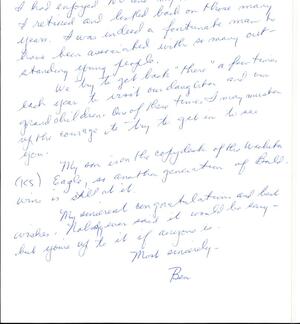 I had enjoyed
I retired and looked back on those many
years. I was indeed a fortunate man to
have been associated with so many out-
standing young people.
We try to get back "there" a few times
each year to visit our daughter and our
grandchildren. One of these times I may muster
up the courage to try to get in to see
you.
My son is on the copy desk of the Wichita
(KS) Eagle, so another generation of
is still at it.
My sincerest congratulations and best
wishes. Nobody ever said it would be easy -
but you're up to it if anyone is.
Most sincerely -
Ben